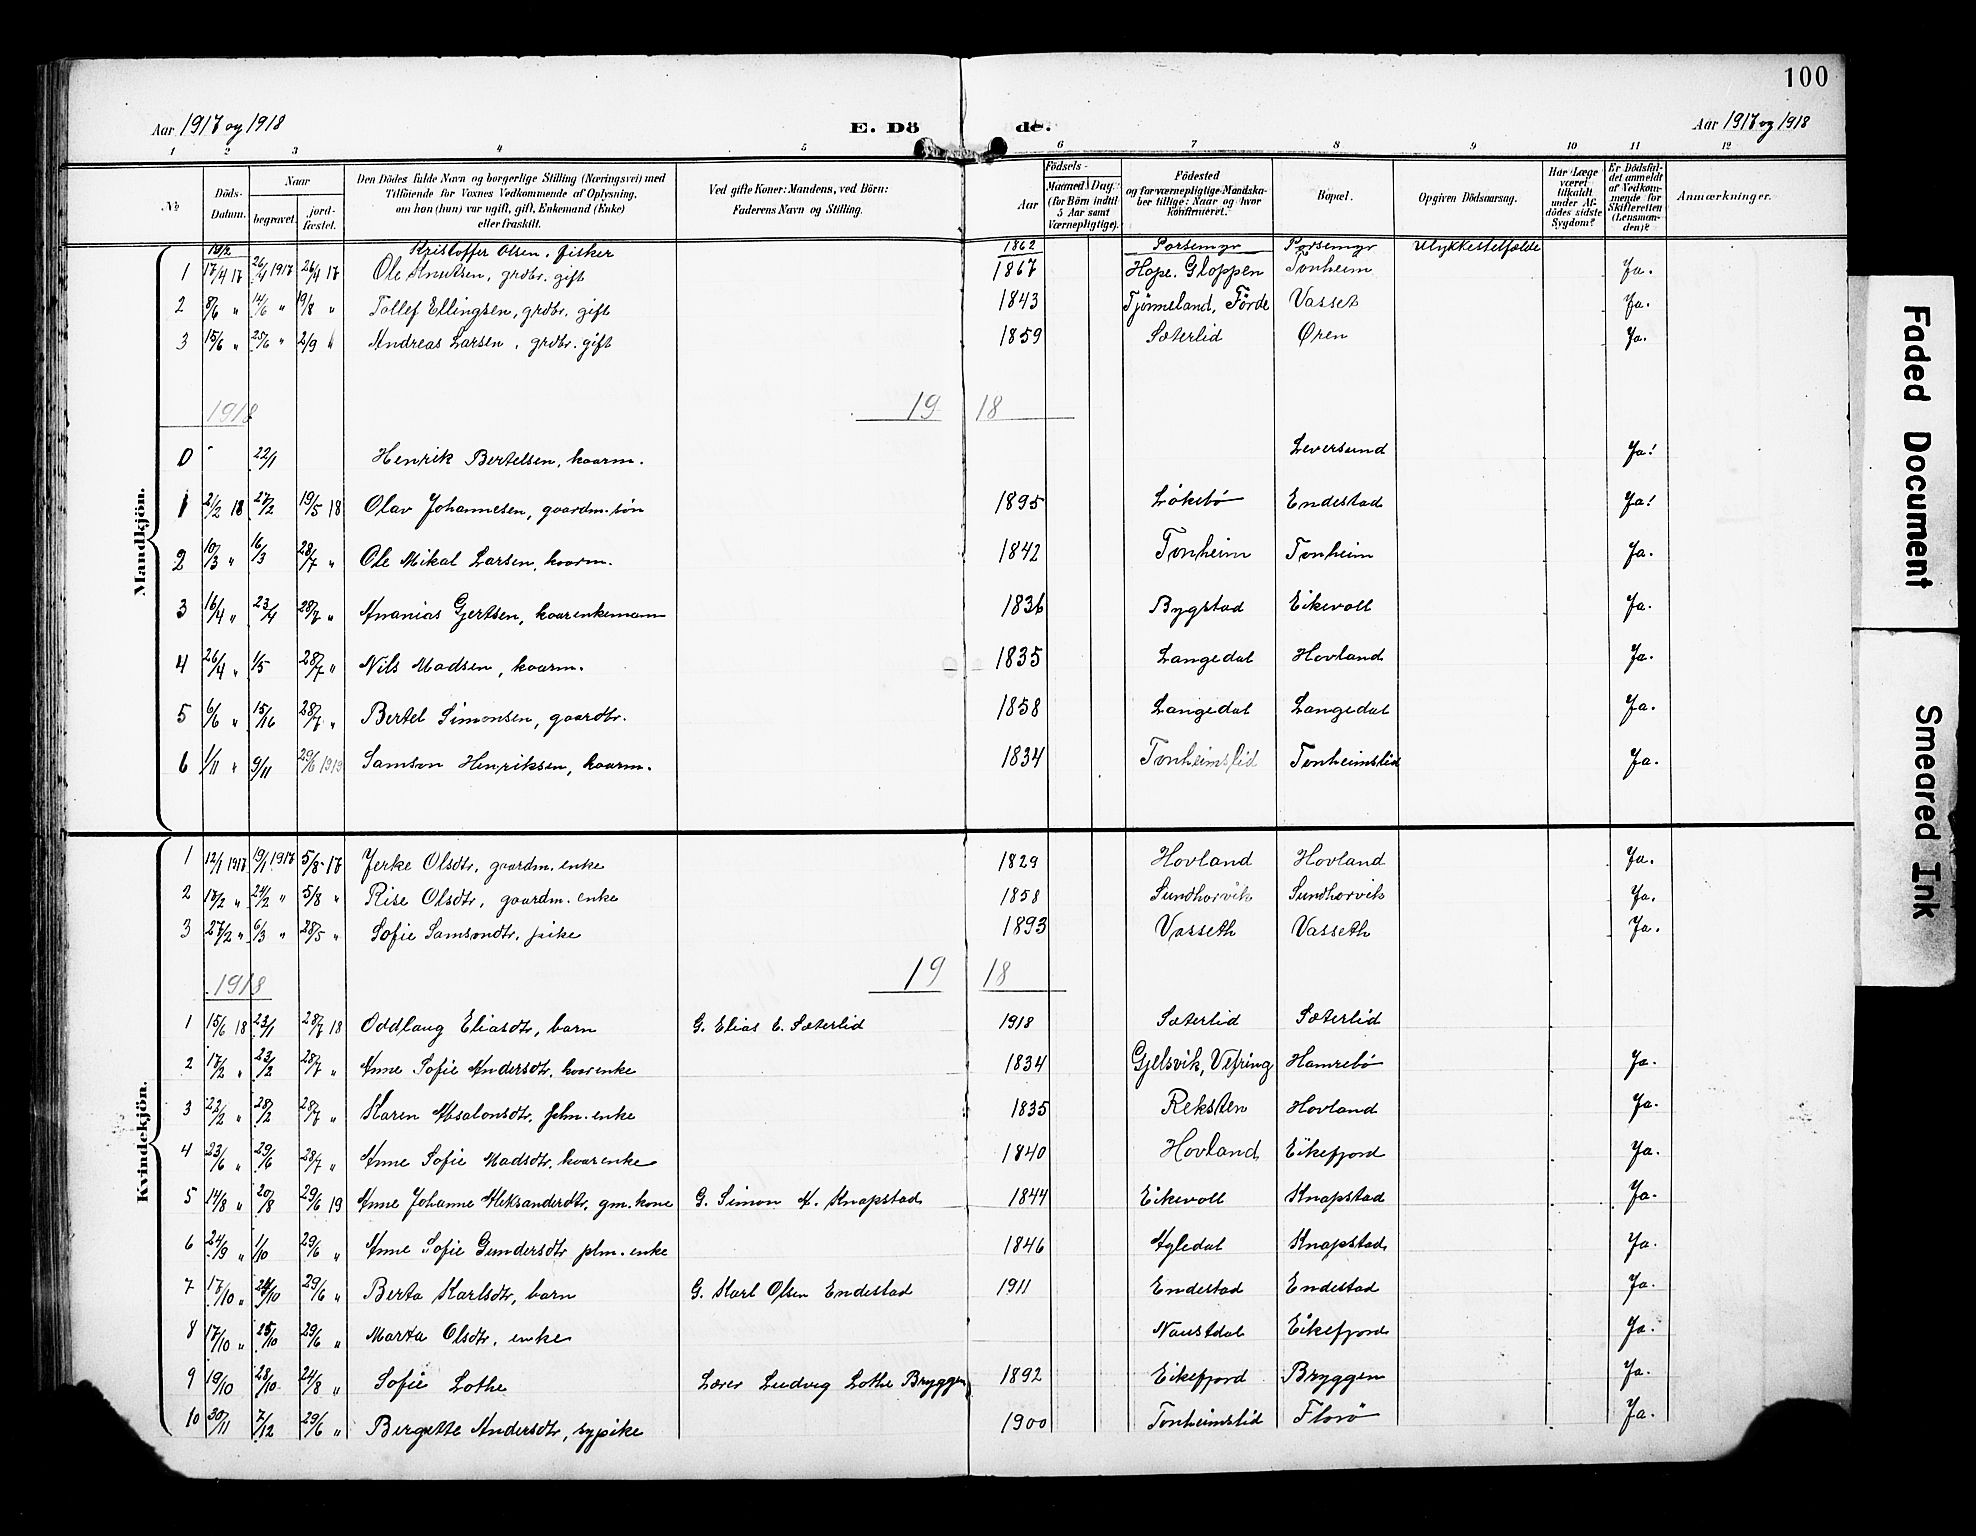 100
Aar 1917 og 1918 E. Dö de. Aar 1917 og 1918
1 2 3 4 5 6 7 8 9 10 11 12
№
Döds-Datum.
Naar
begravet.
jord-fæstet.
Den Dödes fulde Navn og borgerlige Stilling (Næringsvei) med Tilföiende for Voxnes Vedkommende af Oplysning, om han (hun) var ugift, gift, Enkemand (Enke) eller fraskilt.
Ved gifte Koner: Mandens, ved Börn: Faderens Navn og Stilling.
Födsels-
Aar
Maaned Dag.
(for Börn indtil 5 Aar samt Værnepligtige).
Födested
og for værnepligtige Mandska-ber tillige: Naar og hvor konfirmeret.
Bopæl.
Opgiven Dödsaarsag.
Har Læge været tilkaldt under Af-dödes sidste Sygdom?
Er Dödsfal-det anmeldt af Vedkom-mende for Skifteretten (Lensman-den)?
Anmærkninger.
Mandkjön.
19/2 Kristoffer Olsen, fisker 1862 Porsemyr Porsemyr Ulykkestelfælde
1 17/4 17 26/4 1917 26/4 17 Ole Knutsen, grdbr. gift 1867 Hope. Gloppen Tonheim Ja.
2 8/6 " 14/6 " 19/8 " Tollef Ellingsen, grdbr. gift 1843 Tjønneland, Förde Vasset Ja.
3 15/6 " 25/6 " 2/9 " Andreas Larsen, grdbr. gift 1859 Sæterlid Øren Ja.
1918 19 18
0 - 22/1 Henrik Bertelsen, kaarm. Leversund Ja!
1 2/2 18 27/2 19/5 18 Olav Johannesen, gaardm. søn 1895 Løkebø Endestad Ja!
2 10/3 " 16/3 28/7 " Ole Mikal Larsen, kaarm. 1842 Tonheim Tonheim Ja.
3 16/4 " 23/4 28/7 " Ananias Gjertsen, kaarenkemann 1836 Bygstad Eikevoll Ja.
4 26/4 " 1/5 28/7 " Nils Madsen, kaarm. 1835 Langedal Hovland Ja.
5 6/6 " 15/16 28/7 " Bertel Simonsen, gaardbr. 1858 Langedal Langedal Ja.
6 1/11 " 9/11 29/6 1919 Samson Henriksen, kaarm. 1834 Tonheimslid Tonheimslid Ja.
Kvindekjön.
1 12/1 1917 19/1 1917 5/8 17 Jerke Olsdtr, gaardm. enke 1829 Hovland Hovland Ja.
2 17/2 " 24/2 " 5/8 " Rise Olsdtr, gaardm. enke 1858 Sundhorvik Sundhorvik Ja.
3 27/2 " 6/3 " 28/5 " Sofie Samsondtr, pike 1893 Vasseth Vasseth Ja.
1918 19 18
1 15/6 18 23/1 28/7 18 Oddlaug Eliasdtr, barn G. Elias E. Sæterlid 1918 Sæterlid Sæterlid
2 17/2 " 23/2 28/7 " Anne Sofie Andersdtr, kaarenke 1834 Gjelsvik, Vefring Hamrebø Ja.
3 22/2 " 28/2 28/7 " Karen Absalonsdtr, plm. enke 1835 Reksten Hovland Ja.
4 23/6 " 29/6 28/7 " Anne Sofie Madsdtr, kaarenke 1840 Hovland Eikefjord Ja.
5 14/8 " 20/8 29/6 19 Anne Johanne Aleksanderdtr, gm. kone G. Simon A. Knapstad 1844 Eikevoll Knapstad Ja.
6 24/9 " 1/10 29/6 " Anne Sofie Gundersdtr plm. enke 1846 Agledal Knapstad Ja.
7 17/10 " 24/10 29/6 " Berta Karlsdtr, barn G. Karl Olsen Endestad 1911 Endestad Endestad Ja.
8 17/10 " 25/10 29/6 " Marta Olsdtr, enke Naustdal Eikefjord Ja.
9 19/10 28/10 24/8 " Sofie Lothe Lærer Ludvig Lothe Bryggen 1892 Eikefjord Bryggen Ja.
10 30/11 7/12 29/6 " Bergitte Andersdtr, sypike 1900 Tonheimslid Florö Ja.
Faded Document
Smeared Ink